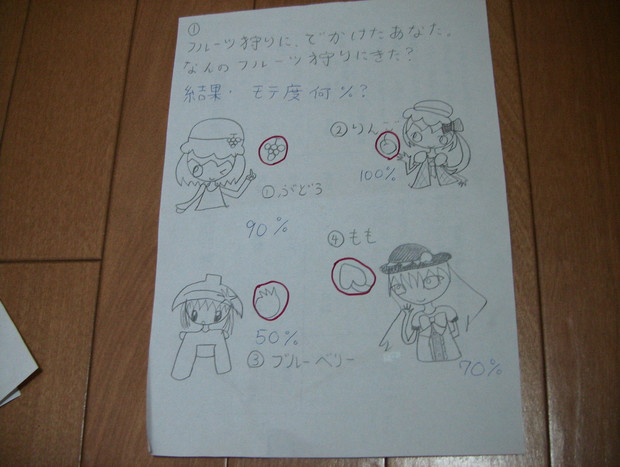 ①
フルーツ狩りに、でかけたあなた。
なんのフルーツ狩りにきた?
結果・ モテ度何%?
②りんご
100%
①ぶどう
90%
④もも
50%
③ブルーベリー
70%